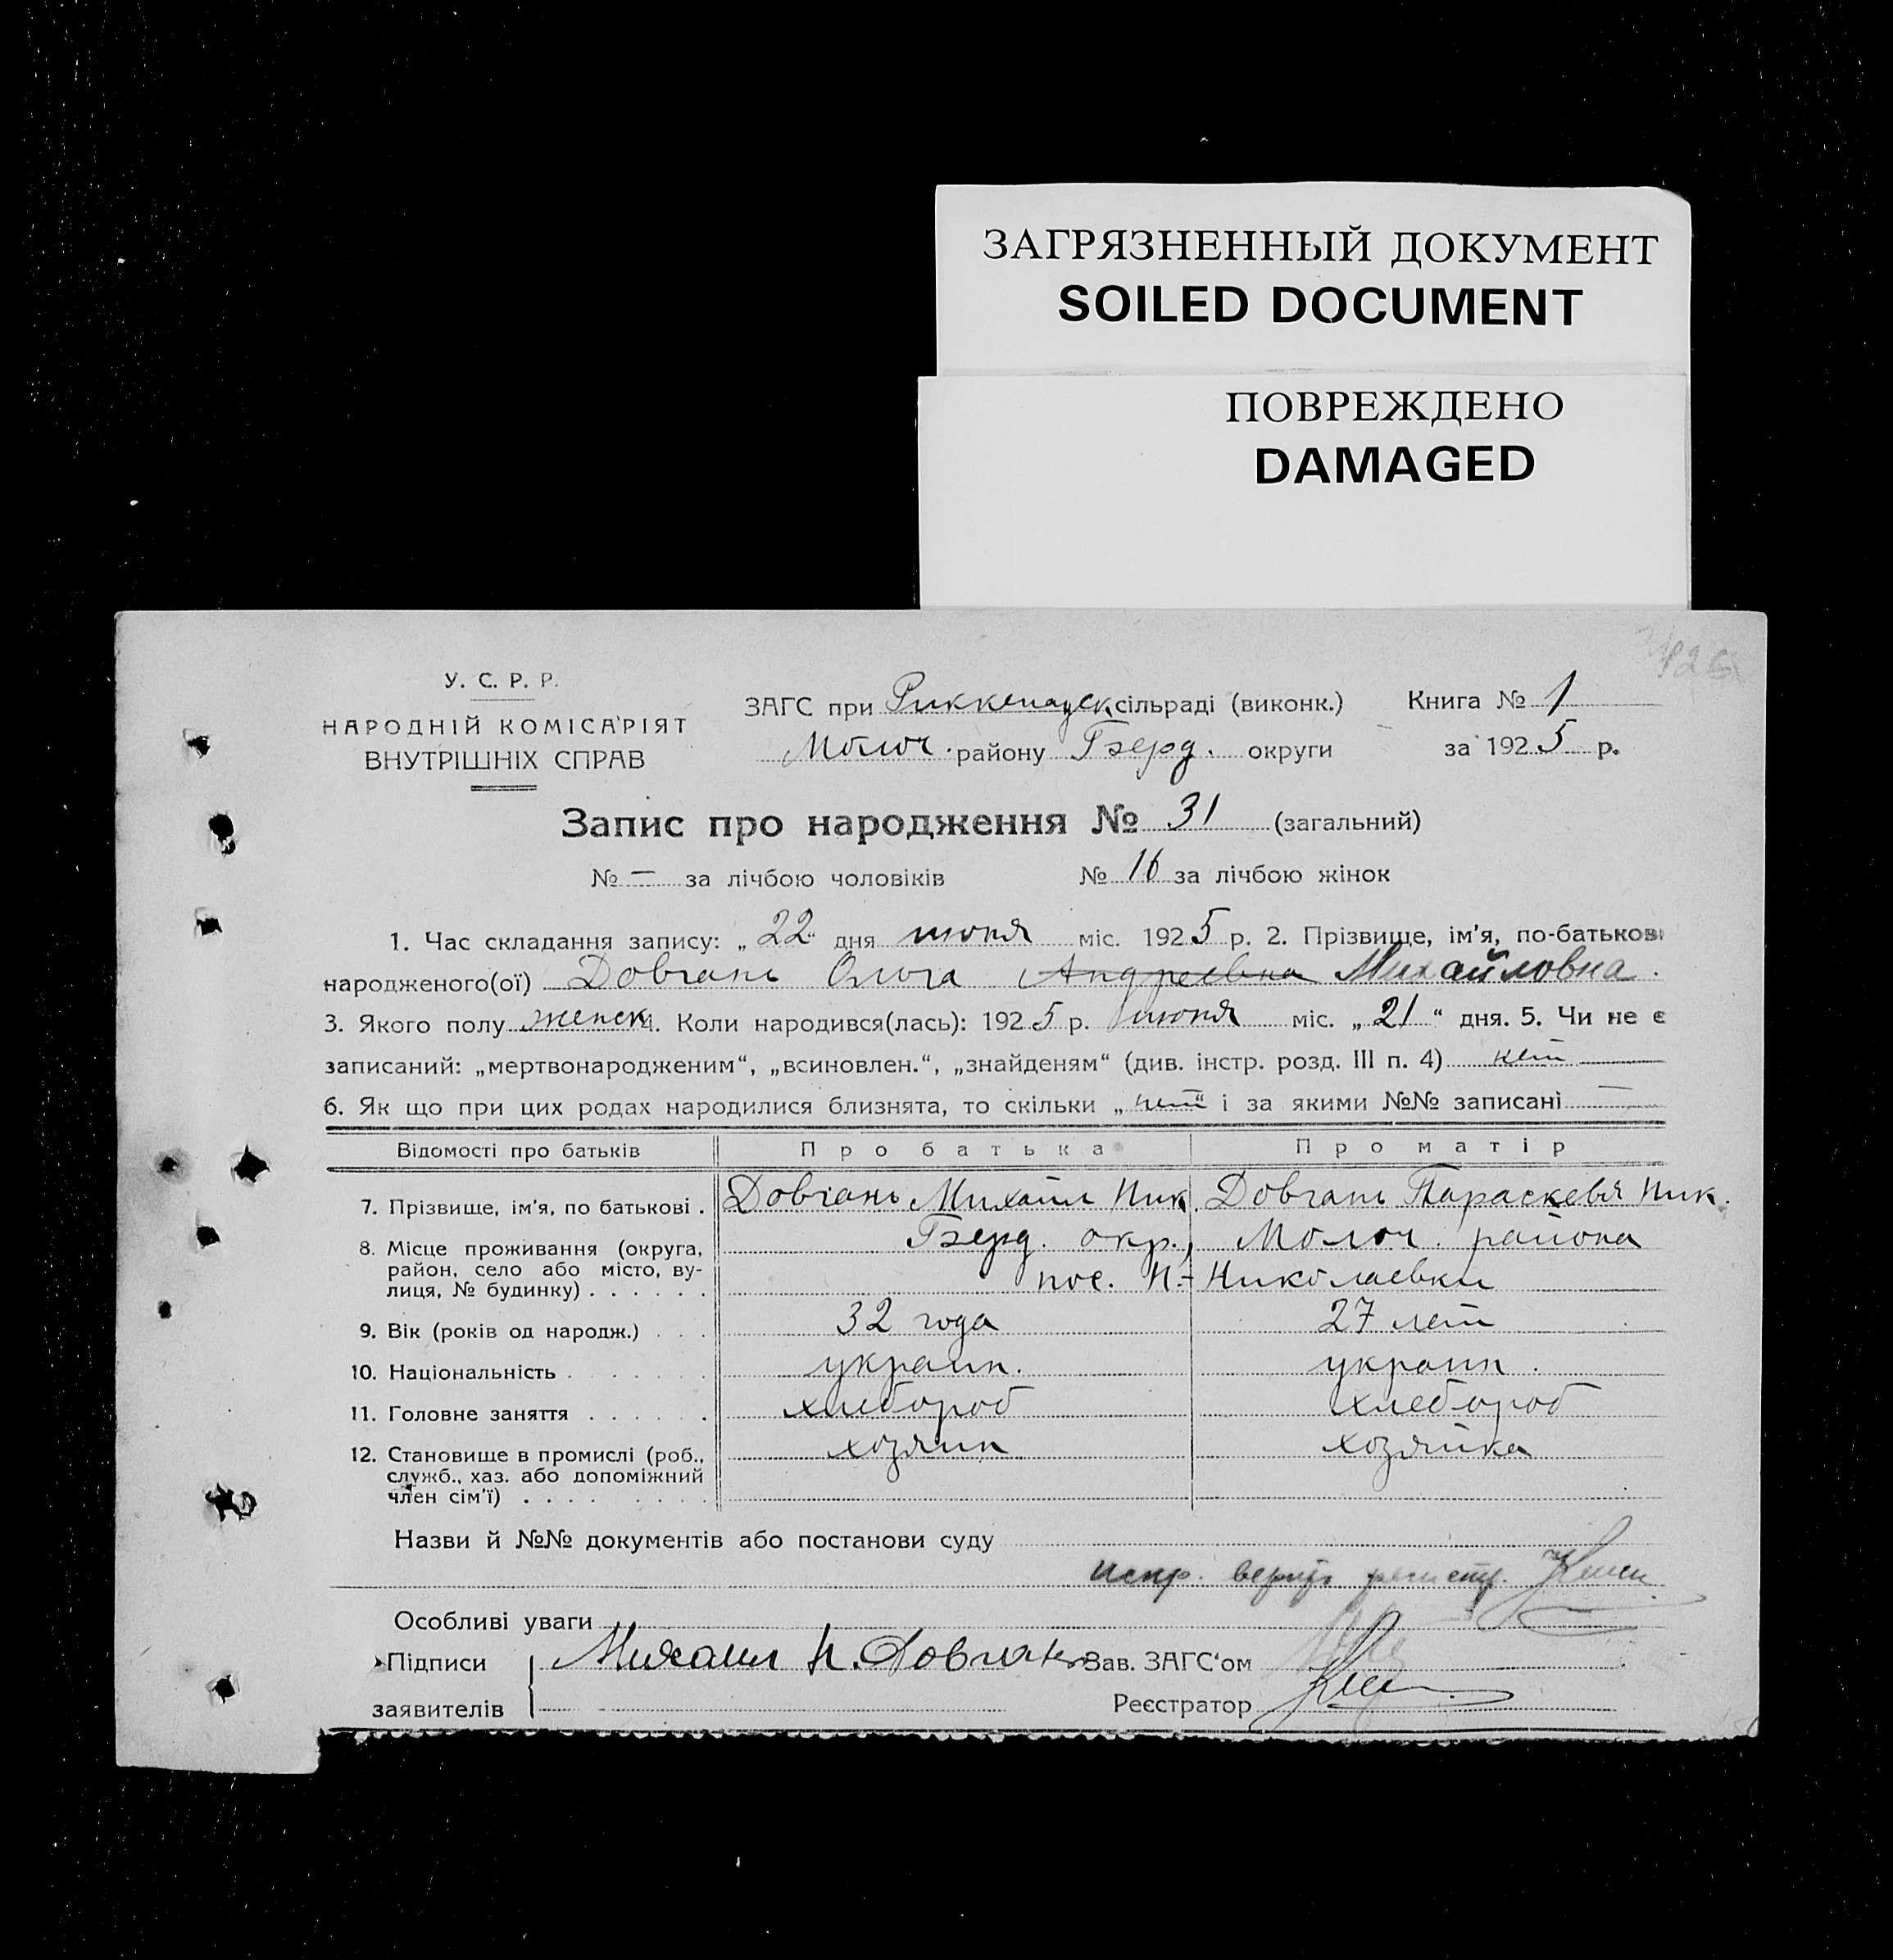 ЗАГРЯЗНЕННЫЙ ДОКУМЕНТ
SOILED DOCUMENT
ПОВРЕЖДЕНО
DAMAGED
У. С. Р. Р.
НАРОДНІЙ КОМІСАРІЯТ
ВНУТРІШНІХ СПРАВ
ЗАГС при Риккенауск сільраді (виконк.) Книга № 1
Молоч. району Бэерд. округи за 1925 р.
Запис про народження № 31 (загальний)
№ — за лічбою чоловіків № 16 за лічбою жінок
1. Час складання запису: „22“ дня июня міс. 1925 р. 2. Прізвище, ім’я, по-батькові
народженого(ої) Довгань Ольга Андреевна Михайловна.
3. Якого полу женск 4. Коли народився(лась): 1925 р. июня міс. „21“ дня. 5. Чи не є
записаний: „мертвонародженим“, „всиновлен.“, „знайденям“ (див. інстр. розд. III п. 4) нет
6. Як що при цих родах народилися близнята, то скільки „нет“ і за якими №№ записані —
Відомості про батьків Про батька Про матір
7. Прізвище, ім’я, по батькові . Довгань Михаил Ник. Довгань Параскевья Ник.
8. Місце проживання (округа, район, село або місто, ву-лиця, № будинку) . . . . . . Бэерд. окр., Молоч. района
пос. Н.-Николаевки
9. Вік (років од народж.) . . . 32 года 27 лет
10. Національність . . . . . . . украин. украин.
11. Головне заняття . . . . . . хлебороб хлебороб
12. Становище в промислі (роб., служб., хаз. або допоміжний член сім’ї) . . . . . . . . хозяин хозяйка
Назви й №№ документів або постанови суду
испр. верить регистр.
Особливі уваги
Підписи Михаил Н. Довгань Зав. ЗАГС‘ом
заявителів Реєстратор